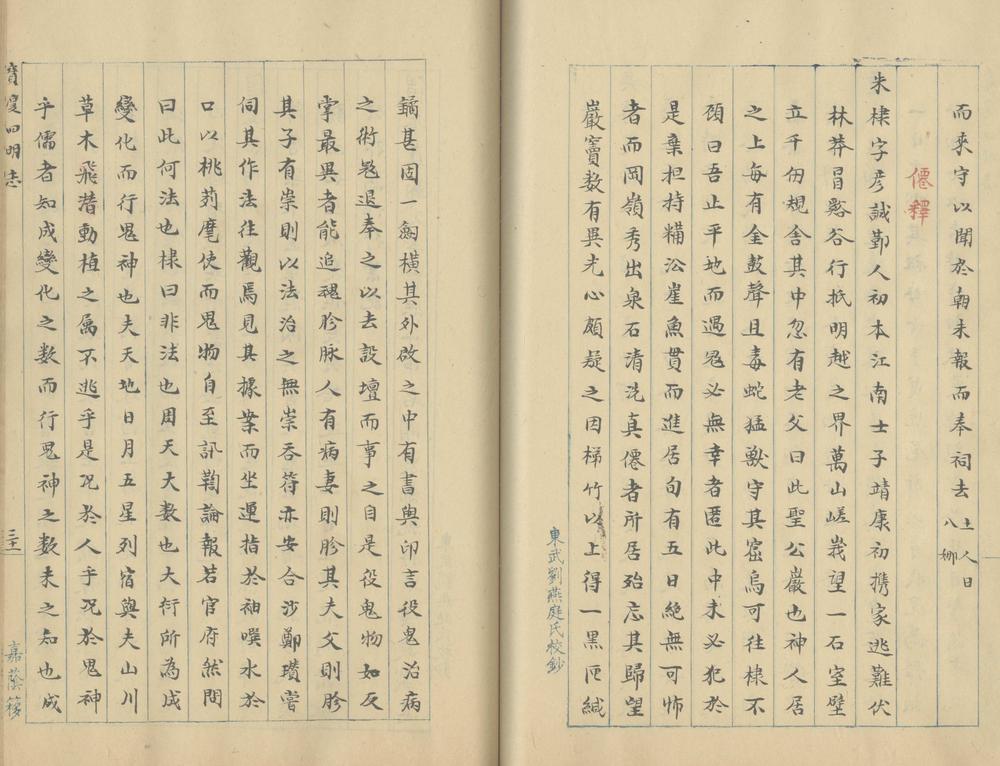 而來守以聞於朝未報而奉祠去土人曰八娜
僊釋
朱棣字彥誠鄞人初本江南士子靖康初携家逃難伏
林莽冒谿谷行抵明越之界萬山嵯峩望一石室壁
立千仞規舍其中忽有老父曰此聖公巖也神人居
之上每有金鼓聲且毒蛇猛獸守其窟烏可往棣不
頋曰吾止平地而遇冦必無幸者匿此中未必犯於
是棄担持糒沿崖魚貫而進居旬有五日絶無可怖
者而岡嶺秀出泉石清洗真僊者所居殆忘其歸望
巖竇数有異光心頗疑之因梯竹以上得一黑匣緘
東武劉燕庭氏校鈔
鐍甚固一劎橫其外啟之中有書與印言役鬼治病
之術冦退奉之以去設壇而事之自是役鬼物如反
掌最異者能追魂胗脉人有病妻則胗其夫父則胗
其子有祟則以法治之無祟吞符亦安合沙鄭瓚嘗
伺其作法往觀焉見其據案而坐運指於袖噀水於
口以桃茢麾使而鬼物自至訊鞫論報若官府然問
曰此何法也棣曰非法也周天大數也大衍所為成
變化而行鬼神也夫天地日月五星列宿與夫山川
草木飛潛動植之属不逃乎是况於人乎况於鬼神
乎儒者知成變化之数而行鬼神之数未之知也成
寶慶四明志
三十一
嘉蔭簃